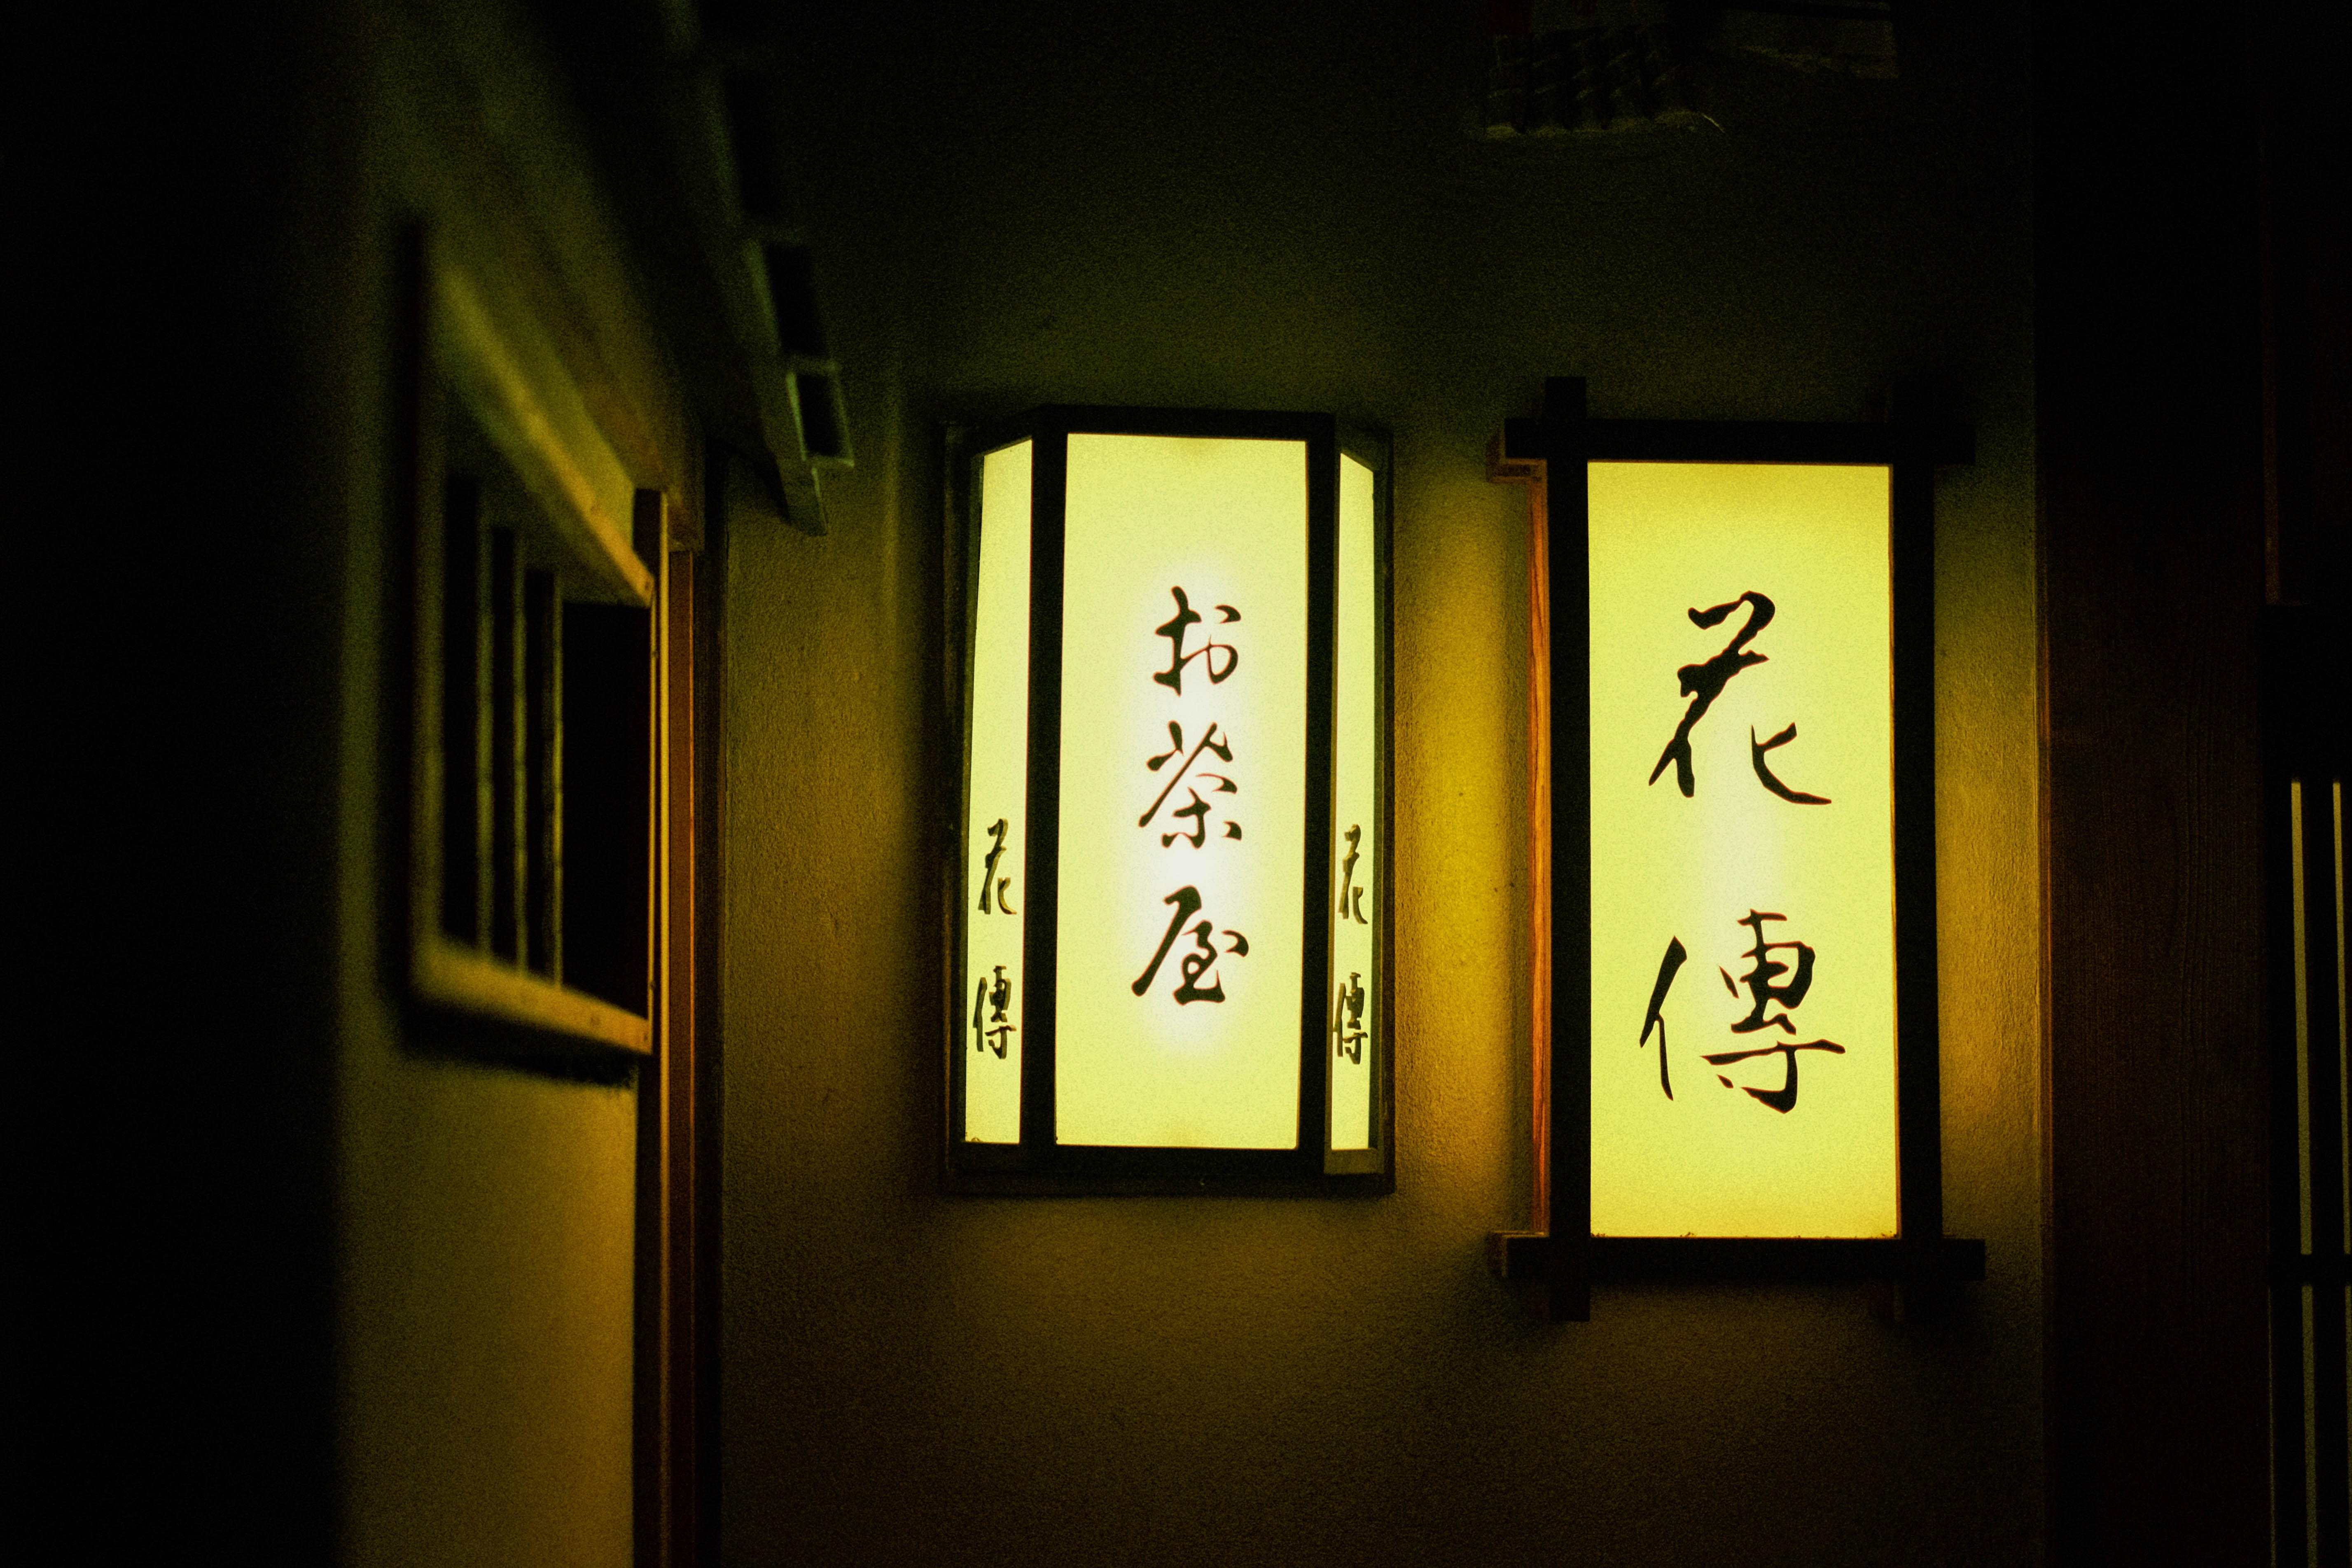 花傳
お茶屋
花傳
花傳